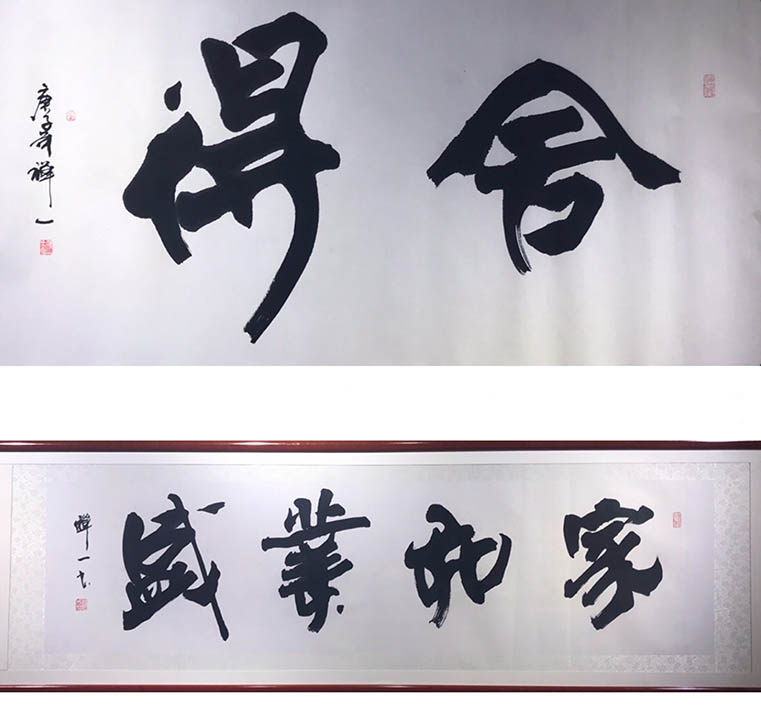 舍得
庚子 禅一
家和業盛
禅一书